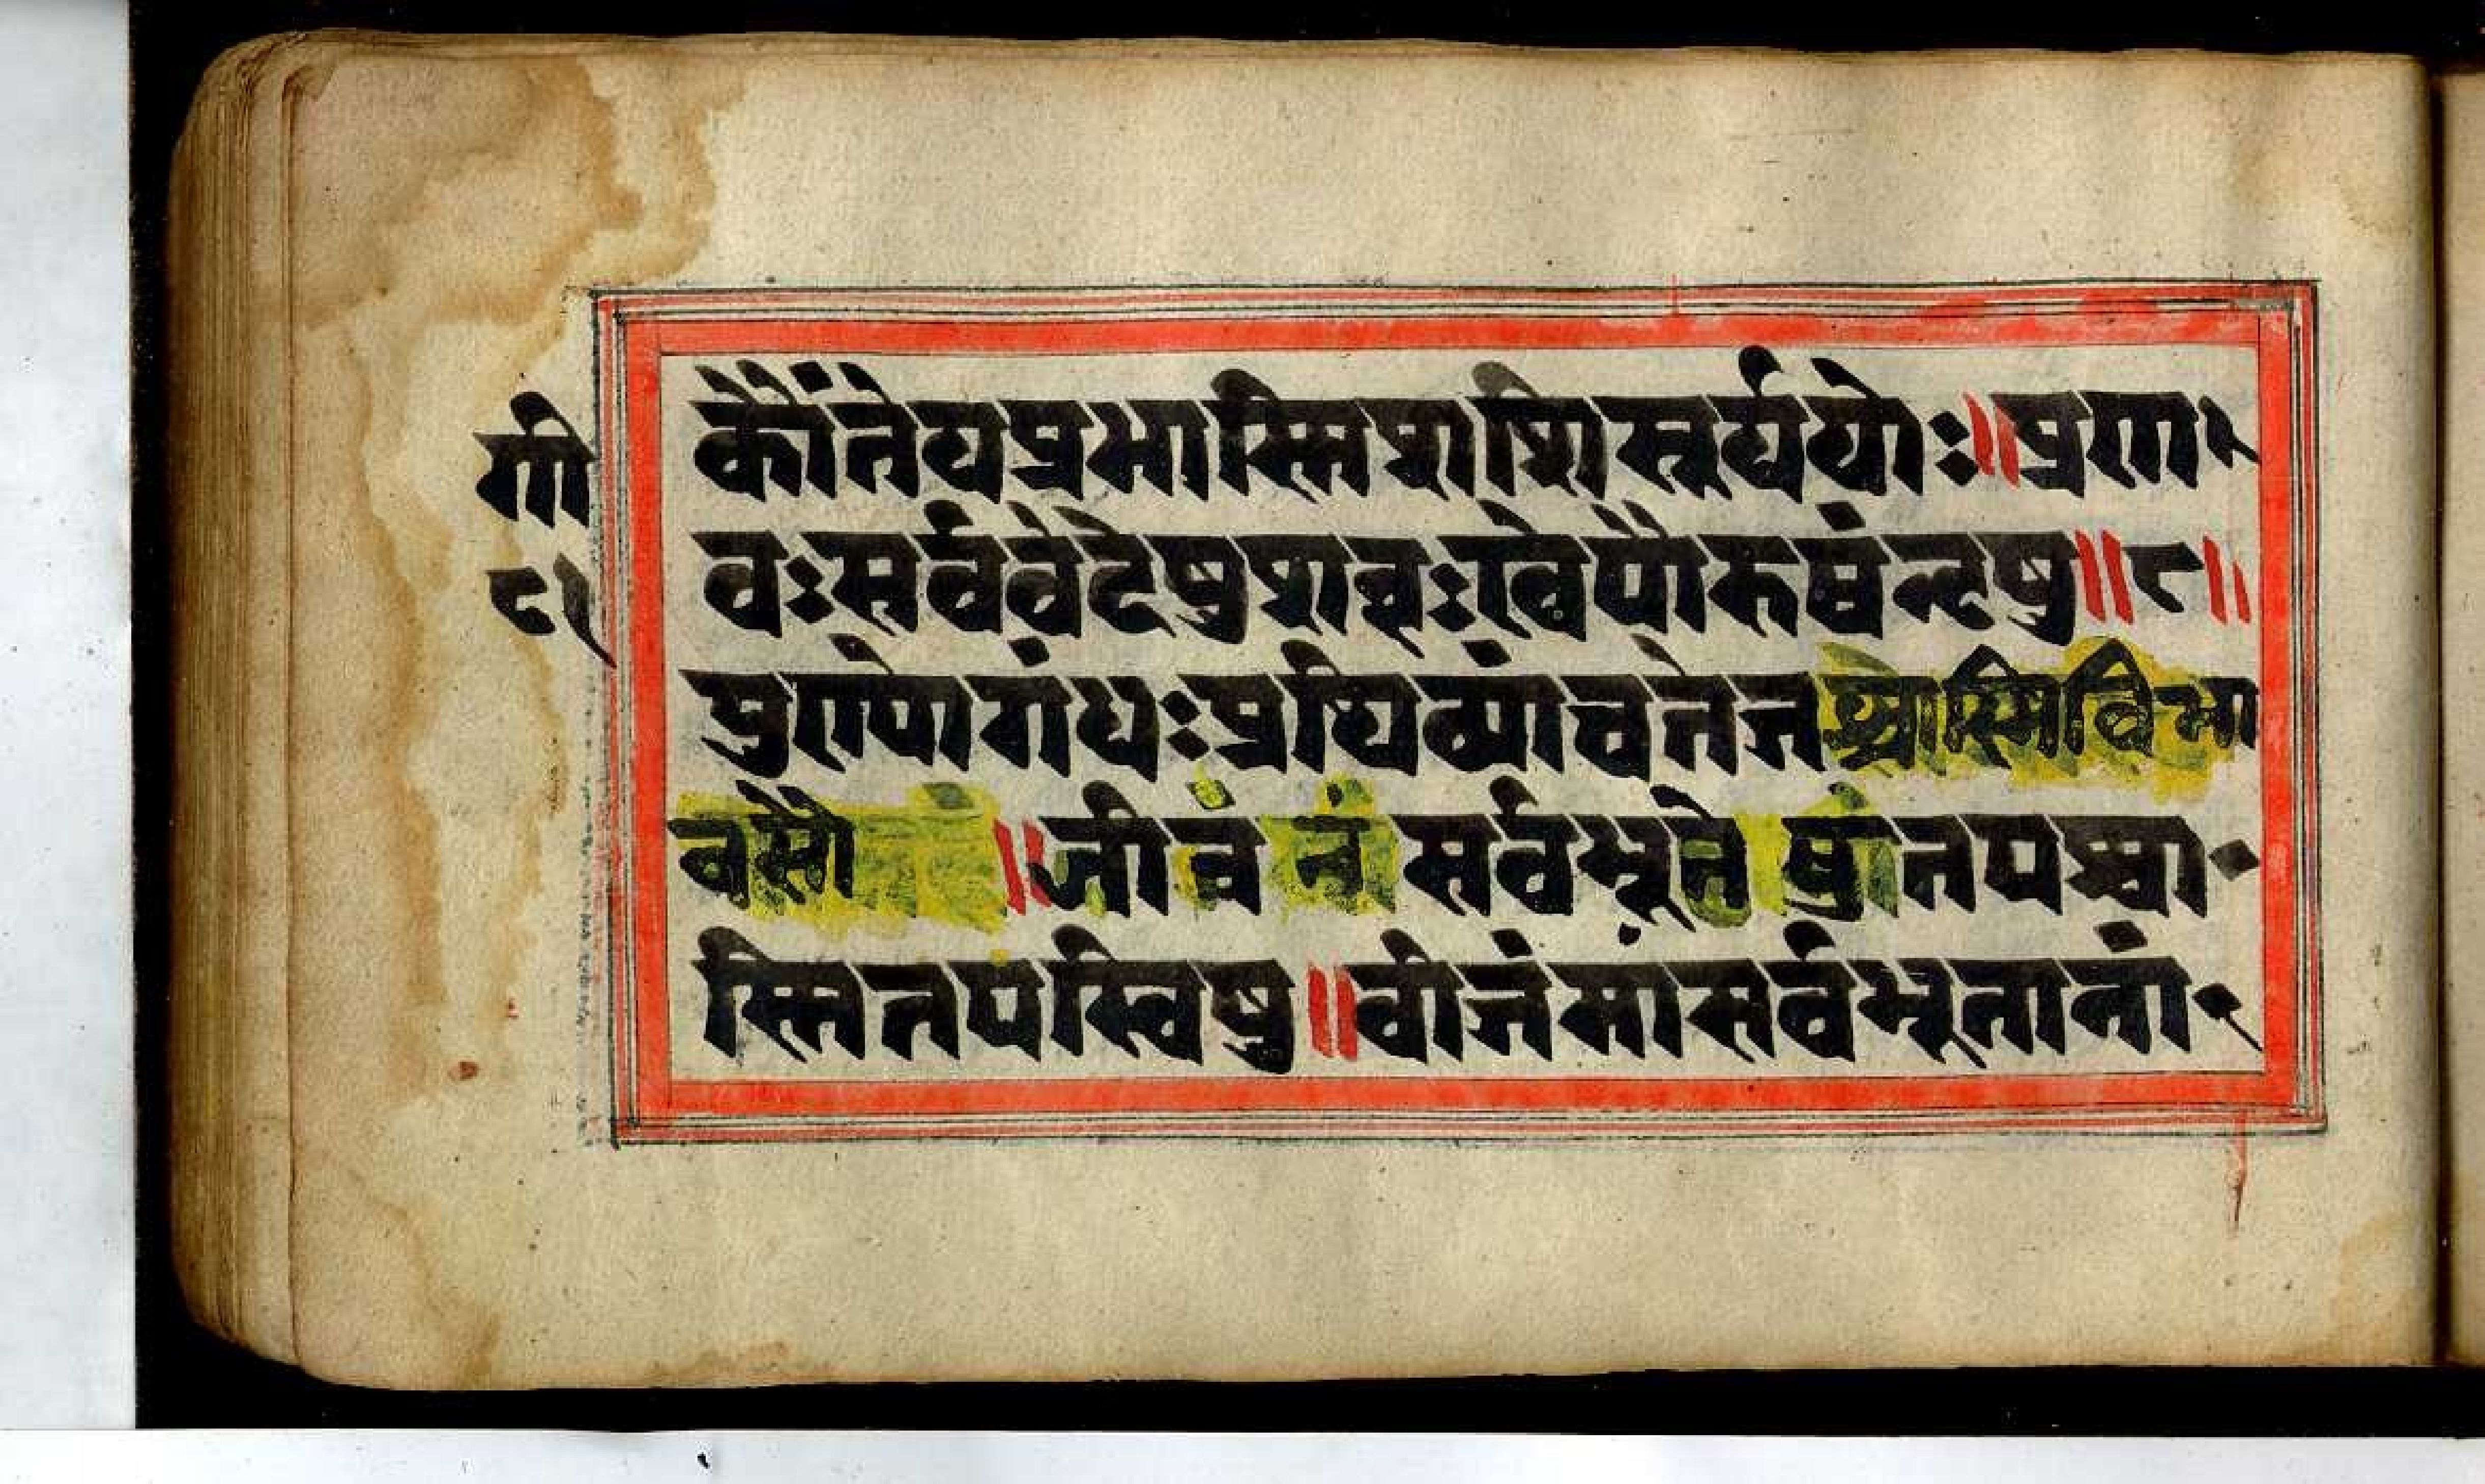 गी
८१
कौंतेयप्रभास्मिशशिसूर्ययोः॥प्रण
वःसर्ववेदेषुशब्दःखेपौरुषंनृषु॥८॥
पुण्योगंधःप्रथिव्यांचतेजश्चास्मिविभा
वसौ॥जीवनंसर्वभूतेषुतपश्चा
स्मितपस्विषु॥वीजंमांसर्वभूतानां